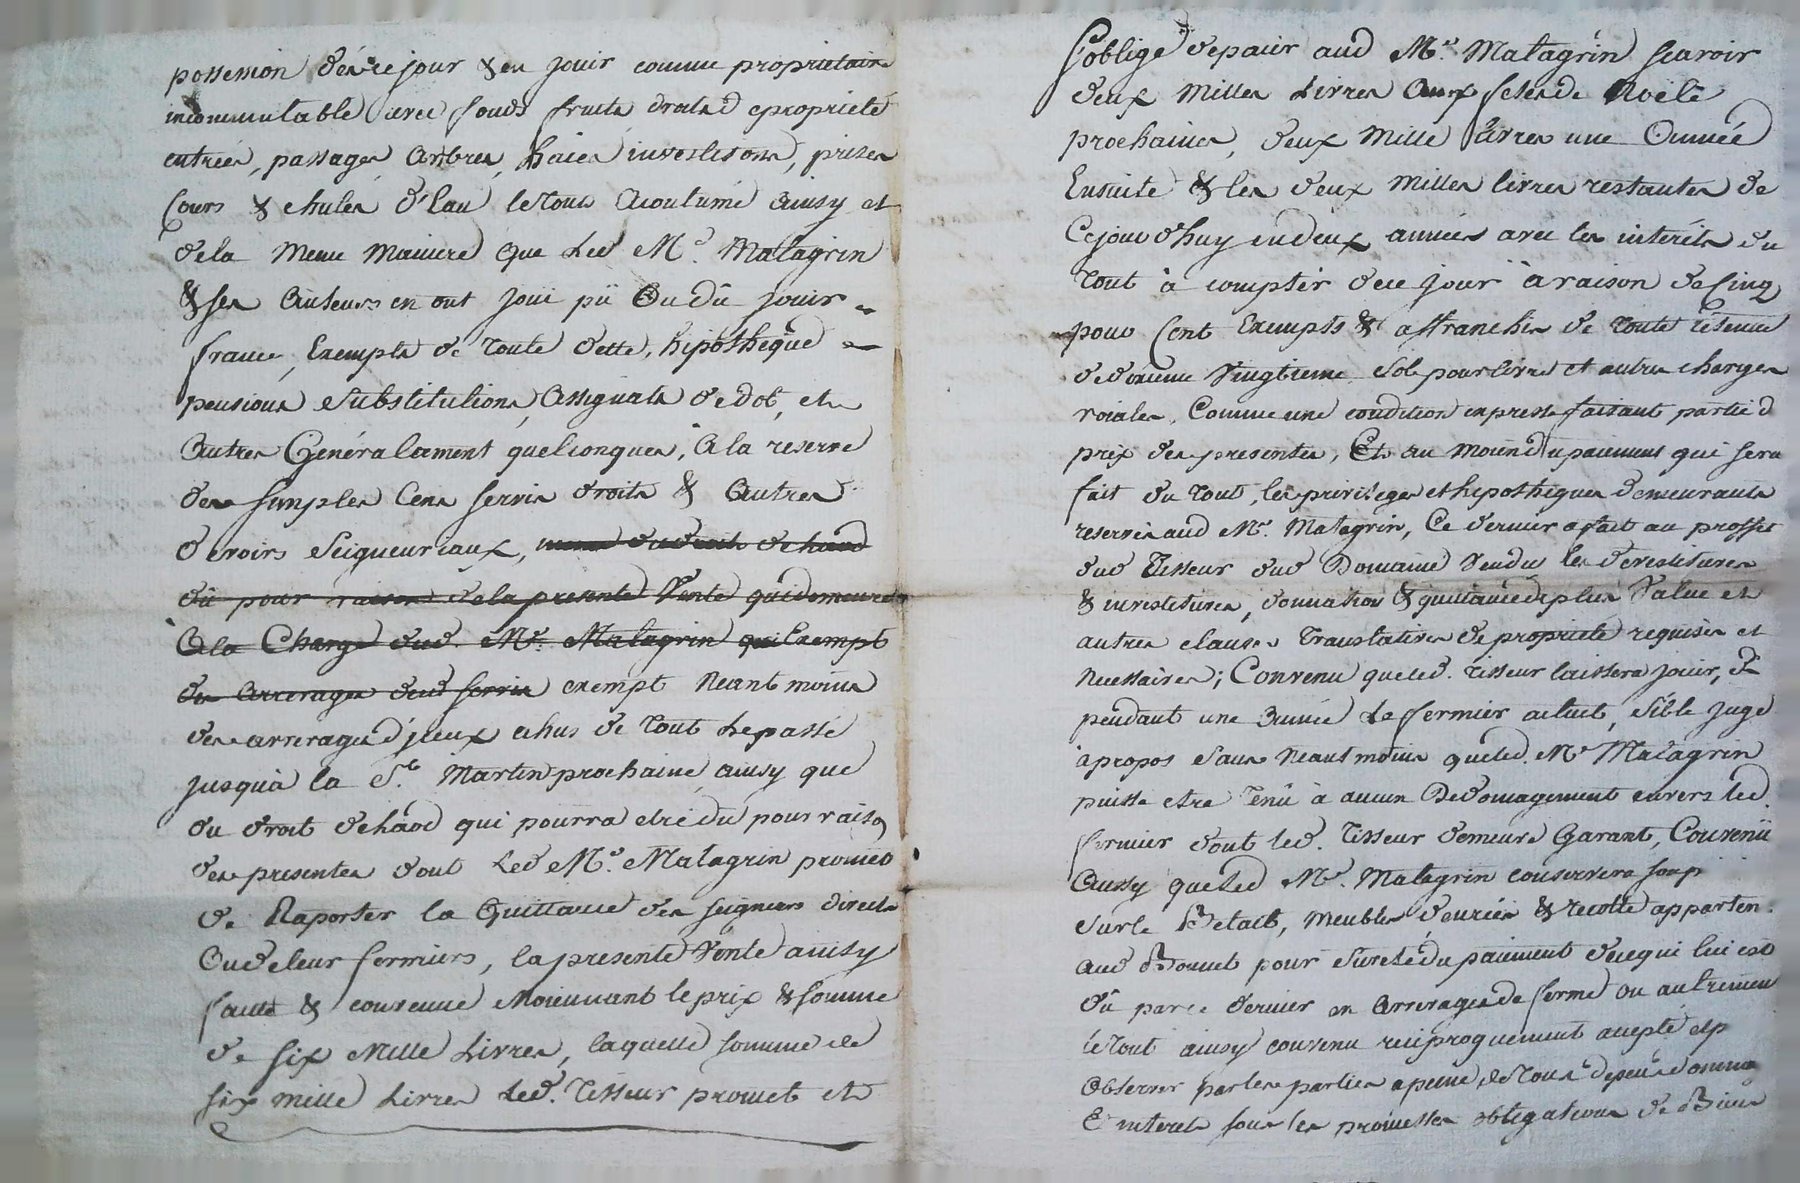 possession déz ce jour & en jouir comme proprietaire
incommutable avec fonds fruits droits de propriété
entrées, passages arbres, haies investisons, prises
Cours & chutes d'Eau le tout acoutumé ainsy et
de la meme maniere que Led Mr. Matagrin
& ses auteurs en ont joui pü ou dû jouir
franc, Exempts de toute dette, hipothèque
pensions substitutions assignats de dot, et
autres Généralement quelconques, à la reserve
des simples Cens servis droits & autres
devoirs seigneuriaux, du droit de haud
dû pour raison de la presente Vente qui demeure
a la Charge dud. Mr. Matagrin qui Exempt
des arrerages dud servis exempt neantmoins
des arrerages d'jceux echus de tout le passé
jusqu'à la St. Martin prochaine, ainsy que
du droit de haod qui pourra etre dû pour raison
des presentes dont Led Mr. Matagrin promet
de Raporter la Quittance des seigneurs directs
ou de leur fermiers, la presente Vente ainsy
faitte & convenue moiennant le prix & somme
de six Mille Livres, laquelle somme de
six mille Livres Led. Tisseur promet et
s'oblige de paier aud Mr. Matagrin scavoir
deux milles Livres aux fetes de Noëlé
prochaines, deux mille livres une année
Ensuite & les deux milles livres restantes de
Cejourd'huy en deux années avec les intérêts du
tout à compter de ce jour à raison de Cinq
pour Cent Exempts & affranchis de toute retenue
de dixieme Vingtieme sol pour livre et autres charges
roiales, Comme une condition expresse faisant partie d
prix des presentes, Et au moien du paiement qui sera
fait du tout, les privileges et hipotheques demeurants
reservés aud Mr. Matagrin, Ce dernier a fait au proffit
dud Tisseur dud Domaine Vendu les devestitures
& investitures, donnation & quittance de plus Value et
autres clauses translatives de propriété requises et
necessaires; Convenu que led. Tisseur laissera jouir,
pendant une année le fermier actuel, s'il le juge
àpropos sans neantmoins que led. Mr Matagrin
puisse etre tenû à aucun Dedomagement envers led.
fermier dont led. Tisseur demeure Garant, Convenü
aussy que led Mr. Matagrin conservera son p
sur le Betail, meubles, denrées & recolte apparten.
aud Bonnet pour sureté du paiement de ce qui lui est
dû par ce dernier en arrerages de ferme ou autrement
le tout ainsy convenu reciproquement accepté et p
observer par les parties a peine de tous depens domma
& interets sous les promesses obligations de Biens